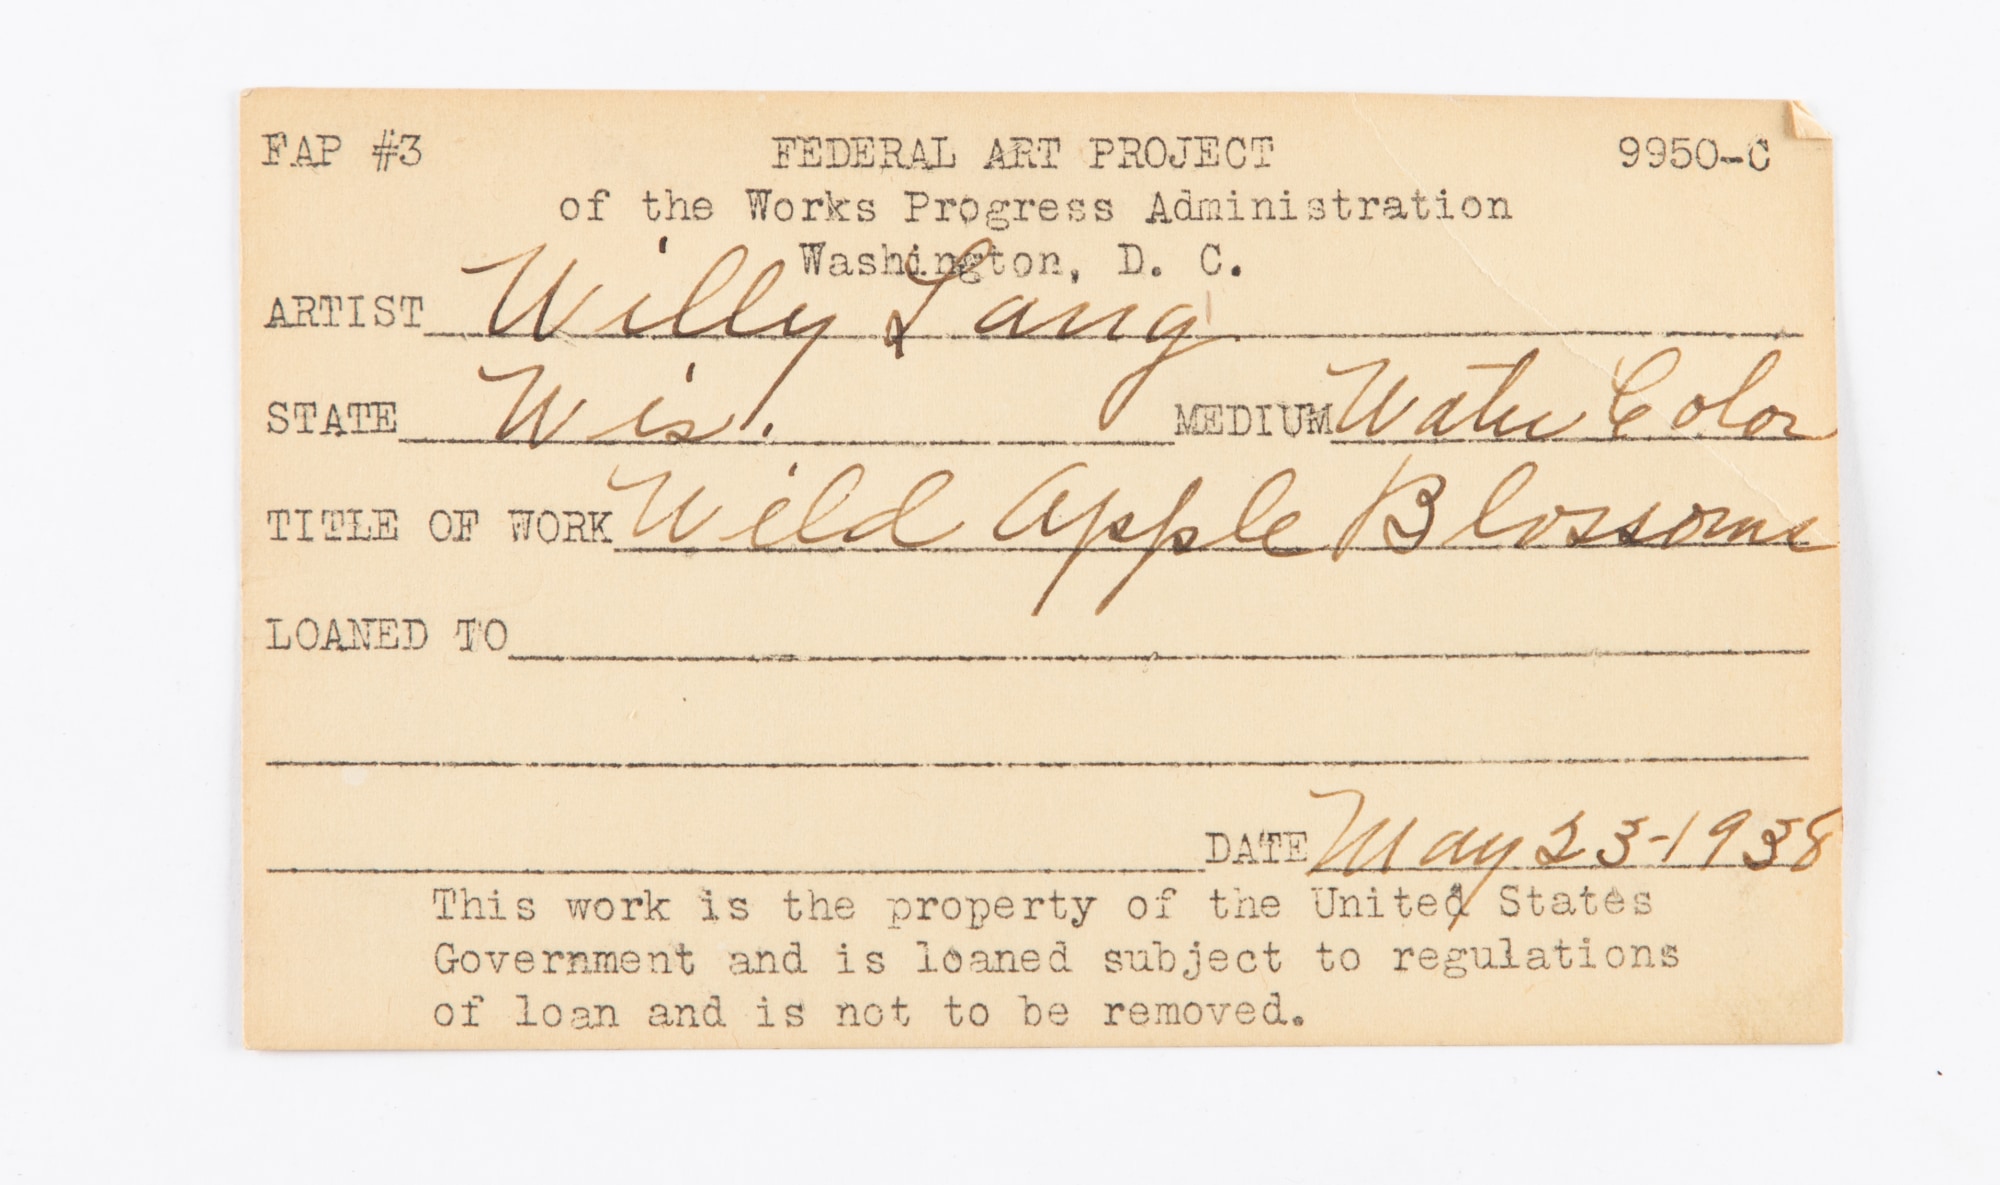 FAP #3 FEDERAL ART PROJECT 9950-C
of the Works Progress Administration
Washington, D. C.
ARTIST Willy Lang
STATE Wis. MEDIUM Water Color
TITLE OF WORK Wild Apple Blossoms
LOANED TO
DATE May 23-1938
This work is the property of the United States
Government and is loaned subject to regulations
of loan and is not to be removed.